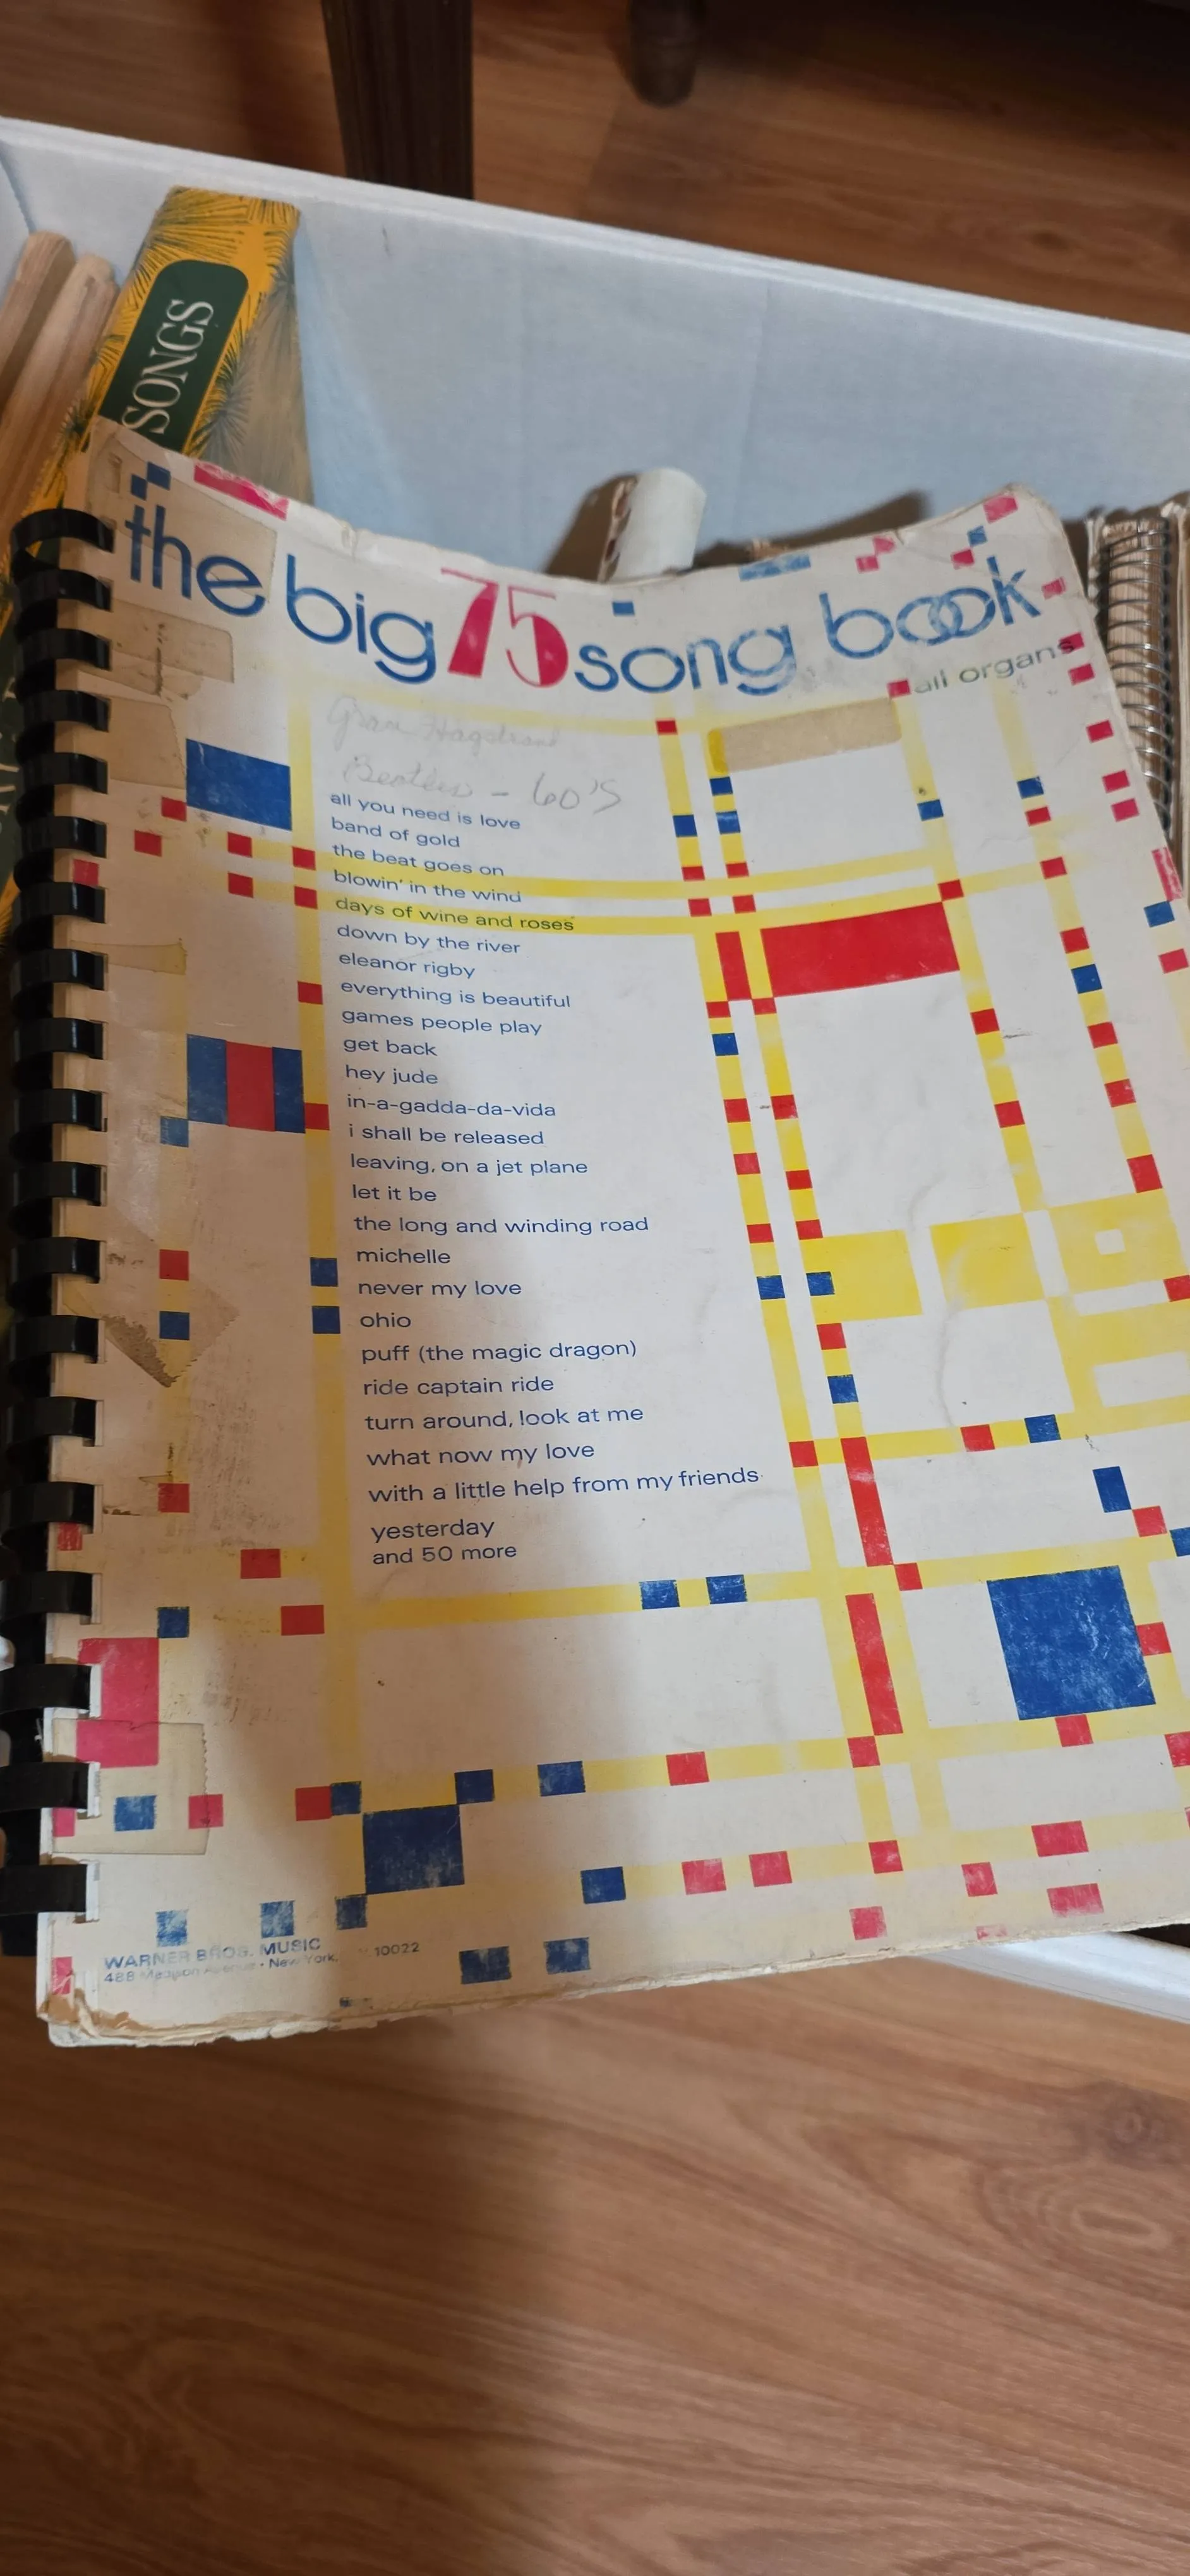 SONGS
the big 75 song book
all organs
Beatles - 60's
all you need is love
band of gold
the beat goes on
blowin' in the wind
days of wine and roses
down by the river
eleanor rigby
everything is beautiful
games people play
get back
hey jude
in-a-gadda-da-vida
i shall be released
leaving, on a jet plane
let it be
the long and winding road
michelle
never my love
ohio
puff (the magic dragon)
ride captain ride
turn around, look at me
what now my love
with a little help from my friends
yesterday
and 50 more
WARNER BROS. MUSIC
488 Madison Avenue • New York, 10022